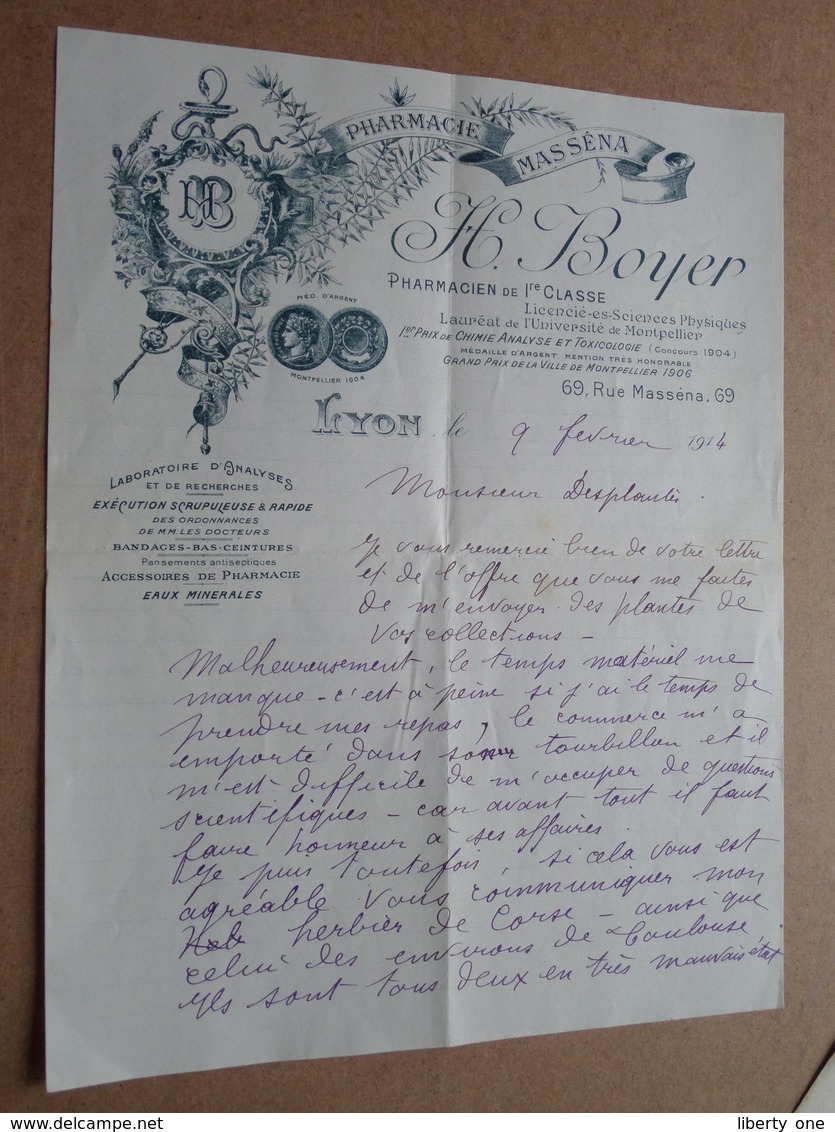 PHARMACIE MASSÉNA
HB
H. Boyer
PHARMACIEN DE 1re CLASSE
Licencié-es-Sciences Physiques
Lauréat de l'Université de Montpellier
1er PRIX DE CHIMIE ANALYSE ET TOXICOLOGIE (Concours 1904)
MÉDAILLE D'ARGENT MENTION TRÈS HONORABLE
GRAND PRIX DE LA VILLE DE MONTPELLIER 1906
MÉD. D'ARGENT
MONTPELLIER 1904
69, Rue Masséna, 69
LYON, le 9 fevrier 1914
LABORATOIRE D'ANALYSES
ET DE RECHERCHES
EXÉCUTION SCRUPULEUSE & RAPIDE
DES ORDONNANCES
DE M.M. LES DOCTEURS
BANDAGES-BAS-CEINTURES
Pansements antiseptiques
ACCESSOIRES DE PHARMACIE
EAUX MINERALES
Monsieur Desplantes.
Je vous remercie bien de votre lettre
et de l'offre que vous me faites
de m'envoyer des plantes de
vos collections -
Malheureusement, le temps matériel me
manque - c'est à peine si j'ai le temps de
prendre mes repas, le commerce m'a
emporté dans son tourbillon et il
m'est difficile de m'occuper de questions
scientifiques - car avant tout il faut
faire honneur à ses affaires.
Je puis toutefois, si cela vous est
agréable vous communiquer mon
herbier de Corse - ainsi que
celui des environs de Toulouse
Ils sont tous deux en très mauvais état
liberty one